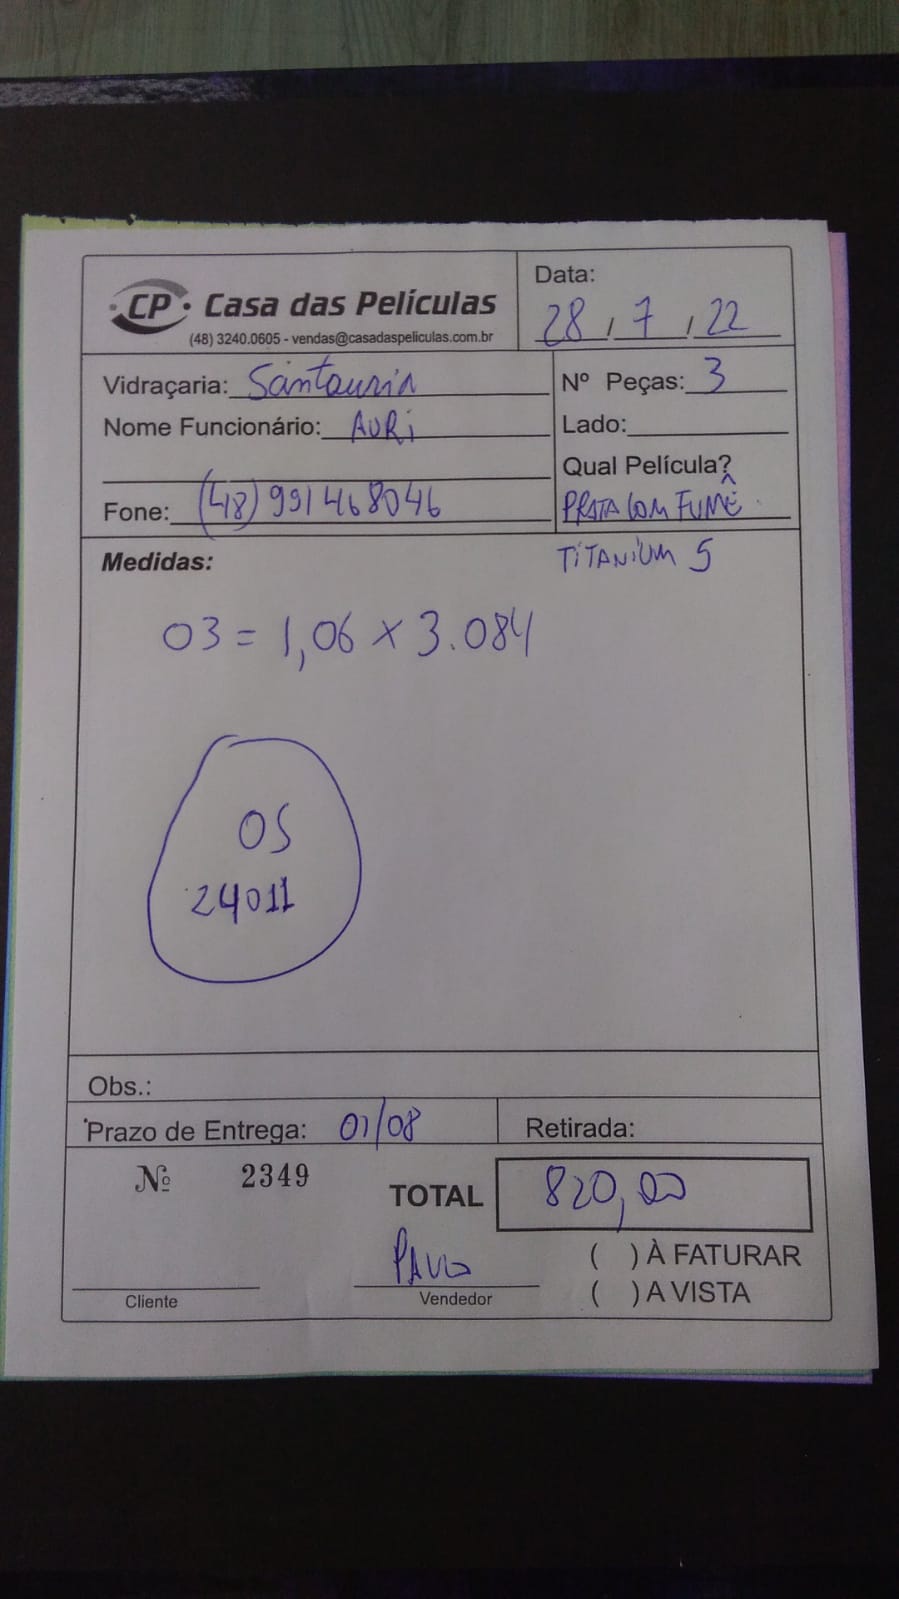 CP Casa das Películas
(48) 3240.0605 - vendas@casadaspeliculas.com.br
Data:
28 / 7 / 22
Vidraçaria: Santauria
Nº Peças: 3
Nome Funcionário: AURi
Lado:
Qual Película?
Fone: (48) 991468046
PRATA COM FUMÊ
Medidas:
TiTANiUM 5
03 = 1,06 x 3.084
OS
24011
Obs.:
Prazo de Entrega: 01/08
Retirada:
Nº 2349
TOTAL 820,00
PAULO
( ) À FATURAR
Cliente
Vendedor
( ) A VISTA